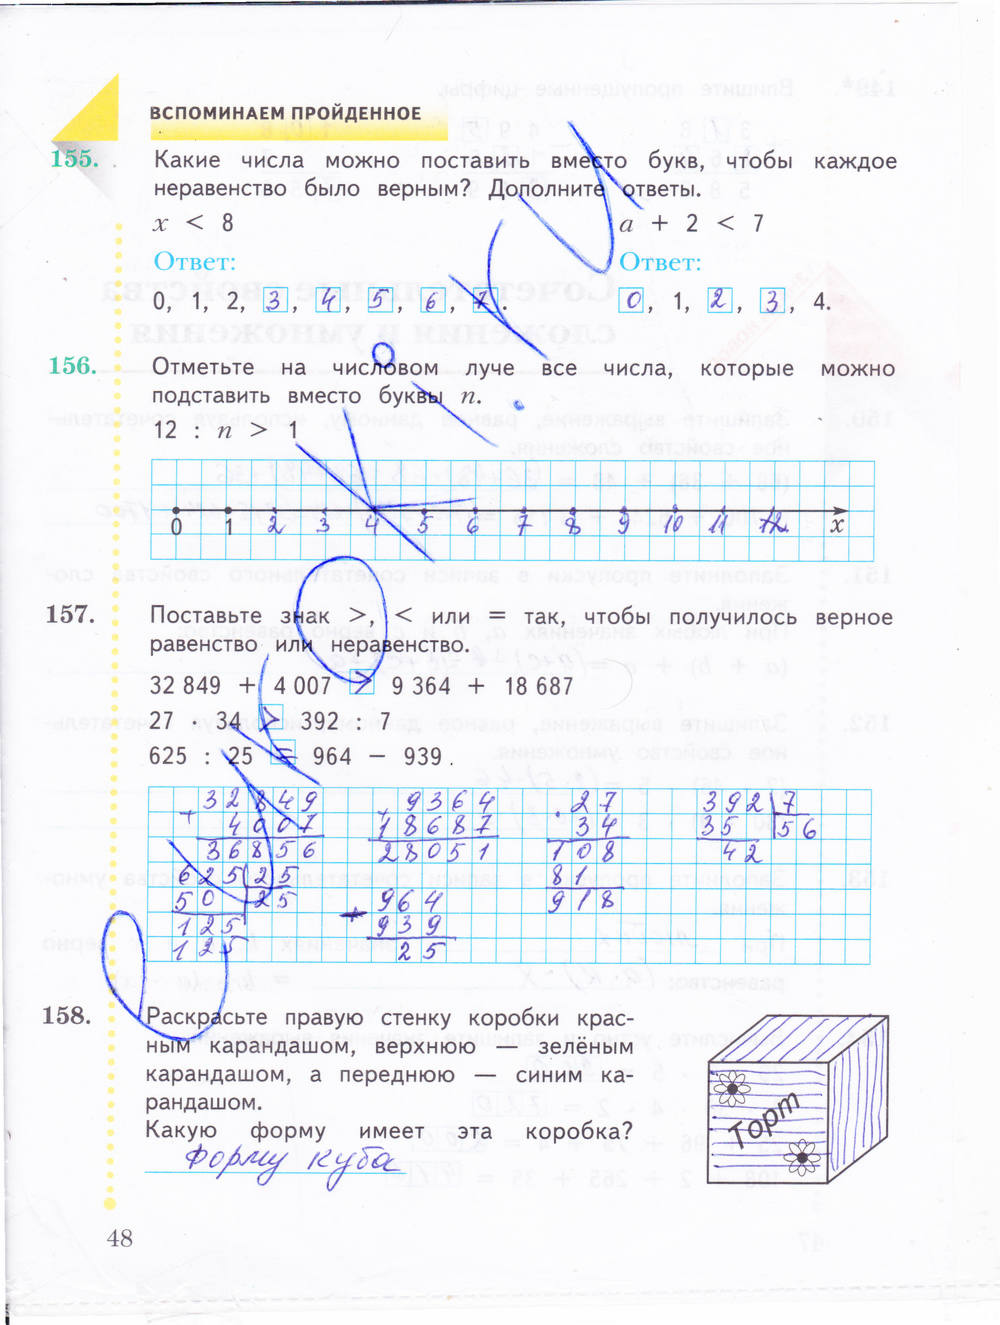 ВСПОМИНАЕМ ПРОЙДЕННОЕ
155. Какие числа можно поставить вместо букв, чтобы каждое
неравенство было верным? Дополните ответы.
x < 8 a + 2 < 7
Ответ: Ответ:
0, 1, 2, 3, 4, 5, 6, 7. 0, 1, 2, 3, 4.
156. Отметьте на числовом луче все числа, которые можно
подставить вместо буквы n.
12 : n > 1
0 1 2 3 4 5 6 7 8 9 10 11 12 x
157. Поставьте знак >, < или = так, чтобы получилось верное
равенство или неравенство.
32 849 + 4 007 > 9 364 + 18 687
27 · 34 > 392 : 7
625 : 25 = 964 − 939.
32849 9364 27 392 7
+ 4007 + 18687 · 34 35 56
36856 28051 108 42
625 25 964 81
50 25 939 918
125 25
125
158. Раскрасьте правую стенку коробки крас-
ным карандашом, верхнюю — зелёным
карандашом, а переднюю — синим ка-
рандашом.
Какую форму имеет эта коробка?
Форму куба
Торт
48